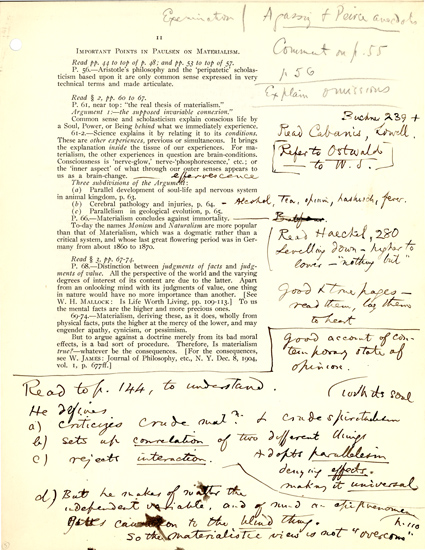 Examination / Agassiz & Peirce anecdote
11
IMPORTANT POINTS IN PAULSEN ON MATERIALISM.
Read pp. 44 to top of p. 48; and pp. 53 to top of 57.
P. 56.—Aristotle's philosophy and the 'peripatetic' scholas-
ticism based upon it are only common sense expressed in very
technical terms and made articulate.
Comment on p. 55
p. 56
Explain omissions
Read § 2, pp. 60 to 67.
P. 61, near top: "the real thesis of materialism."
Argument 1:—the supposed invariable connexion."
Common sense and scholasticism explain conscious life by
a Soul, Power, or Being behind what we immediately experience.
61-2.—Science explains it by relating it to its conditions.
These are other experiences, previous or simultaneous. It brings
the explanation inside the tissue of our experiences. For ma-
terialism, the other experiences in question are brain-conditions.
Consciousness is 'nerve-glow,' nerve-'phosphorescence,' etc.; or
the 'inner aspect' of what through our outer senses appears to
us as a brain-change. — effervescence
Büchner 239 +
Read Cabanis, Lowell.
Refer to Ostwald
to W. J.
Three subdivisions of the Argument:
(a) Parallel development of soul-life and nervous system
in animal kingdom, p. 63.
(b) Cerebral pathology and injuries, p. 64. — Alcohol, Tea, opium, hashish, fever.
(c) Parallelism in geological evolution, p. 65.
P. 66.—Materialism concludes against immortality.
To-day the names Monism and Naturalism are more popular
than that of Materialism, which was a dogmatic rather than a
critical system, and whose last great flowering period was in Ger-
many from about 1860 to 1870.
Read Haeckel, 280
Levelling down — higher to
lower — "nothing but"
Read § 3, pp. 67-74.
P. 68.—Distinction between judgments of facts and judg-
ments of value. All the perspective of the world and the varying
degrees of interest of its content are due to the latter. Apart
from an onlooking mind with its judgments of value, one thing
in nature would have no more importance than another. [See
W. H. MALLOCK: Is Life Worth Living, pp. 109-113.] To us
the mental facts are the higher and more precious ones.
69-74.—Materialism, deriving these, as it does, wholly from
physical facts, puts the higher at the mercy of the lower, and may
engender apathy, cynicism, or pessimism.
But to argue against a doctrine merely from its bad moral
effects, is a bad sort of procedure. Therefore, Is materialism
true?—whatever be the consequences. [For the consequences,
see W. JAMES: Journal of Philosophy, etc., N. Y. Dec. 8, 1904,
vol. 1, p. 677ff.]
Good & true pages —
read them, lay them
to heart
Good account of con-
temporary state of
opinion.
Read to p. 144, to understand.
with its soul
He defines
a) criticizes crude mat? & crude spiritualism
b) sets up correlation of two different things
c) rejects interaction.
Adopts parallelism
denying effects.
making it universal
d) But he makes of matter the
independent variable, and of mind an epiphenomenon
causation to the blind thing. p. 110
So the materialistic view is not "overcome"